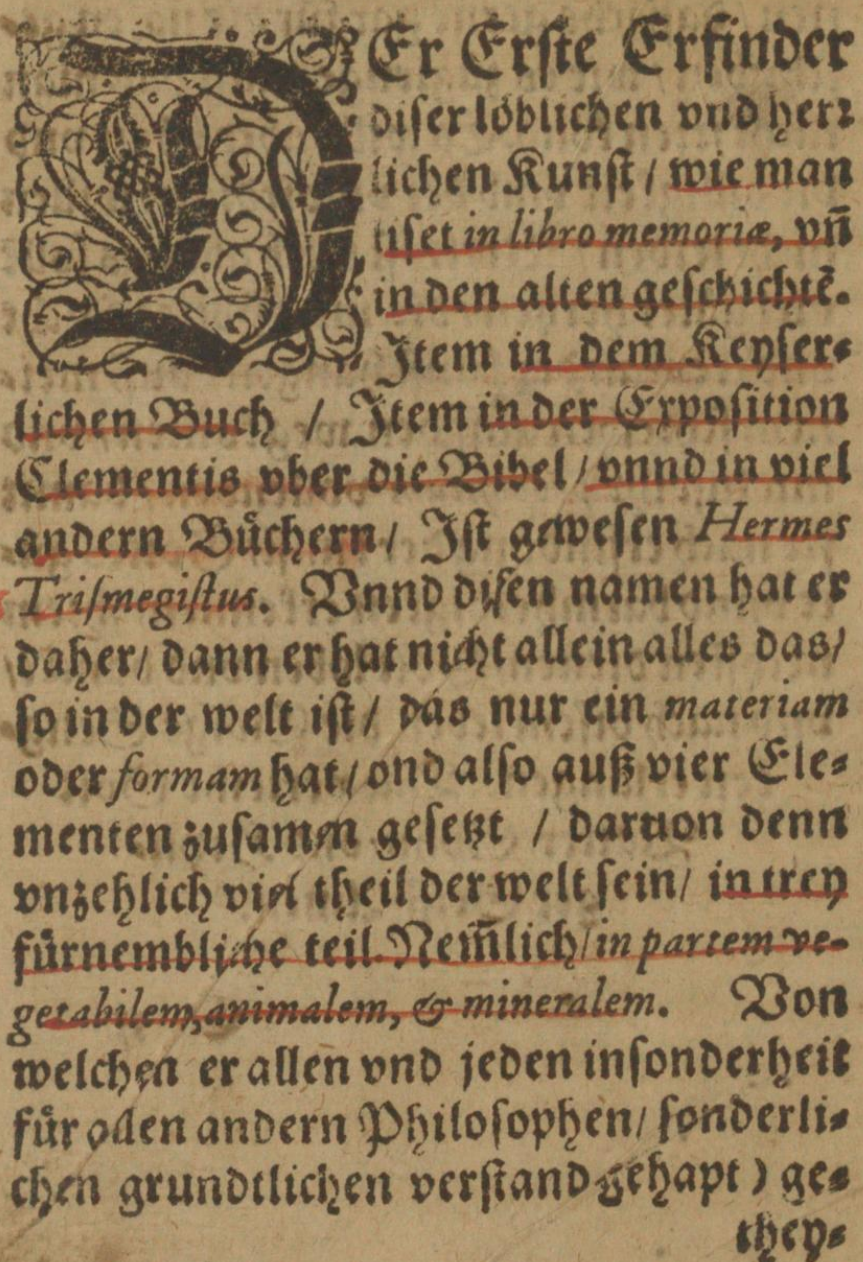 DEr Erſte Erfinder
diſer löblichen vnd herꝛ
lichen Kunſt / wie man
liſet in libro memoriæ, vñ
in den alten geſchichtẽ.
Item in dem Keyſer⸗
lichen Buch / Item in der Expoſition
Clementis vber die Bibel / vnnd in viel
andern Bůchern / Iſt geweſen Hermes
Triſmegiſtus. Vnnd diſen namen hat er
daher / dann er hat nicht allein alles das /
ſo in der welt iſt / das nur ein materiam
oder formam hat / ond alſo auß vier Ele⸗
menten zuſamen geſetzt / daruon denn
vnzehlich viel theil der welt ſein / in trey
fürnembliche teil. Nem̃lich / in partem ve-
getabilem, animalem, & mineralem. Von
welchen er allen vnd jeden inſonderheit
für allen andern Philoſophen / ſonderli⸗
chen grundtlichen verſtand gehapt) ge⸗
they⸗